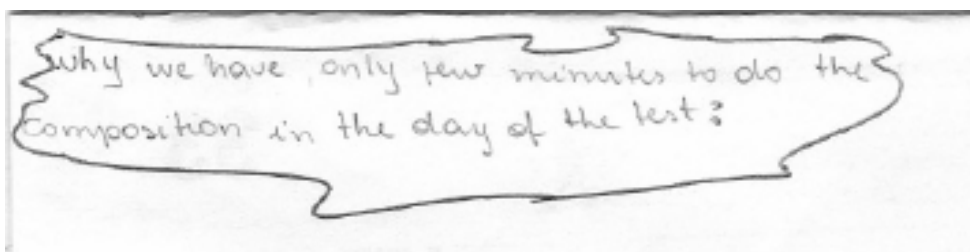 why we have, only few minutes to do the
composition in the day of the test?